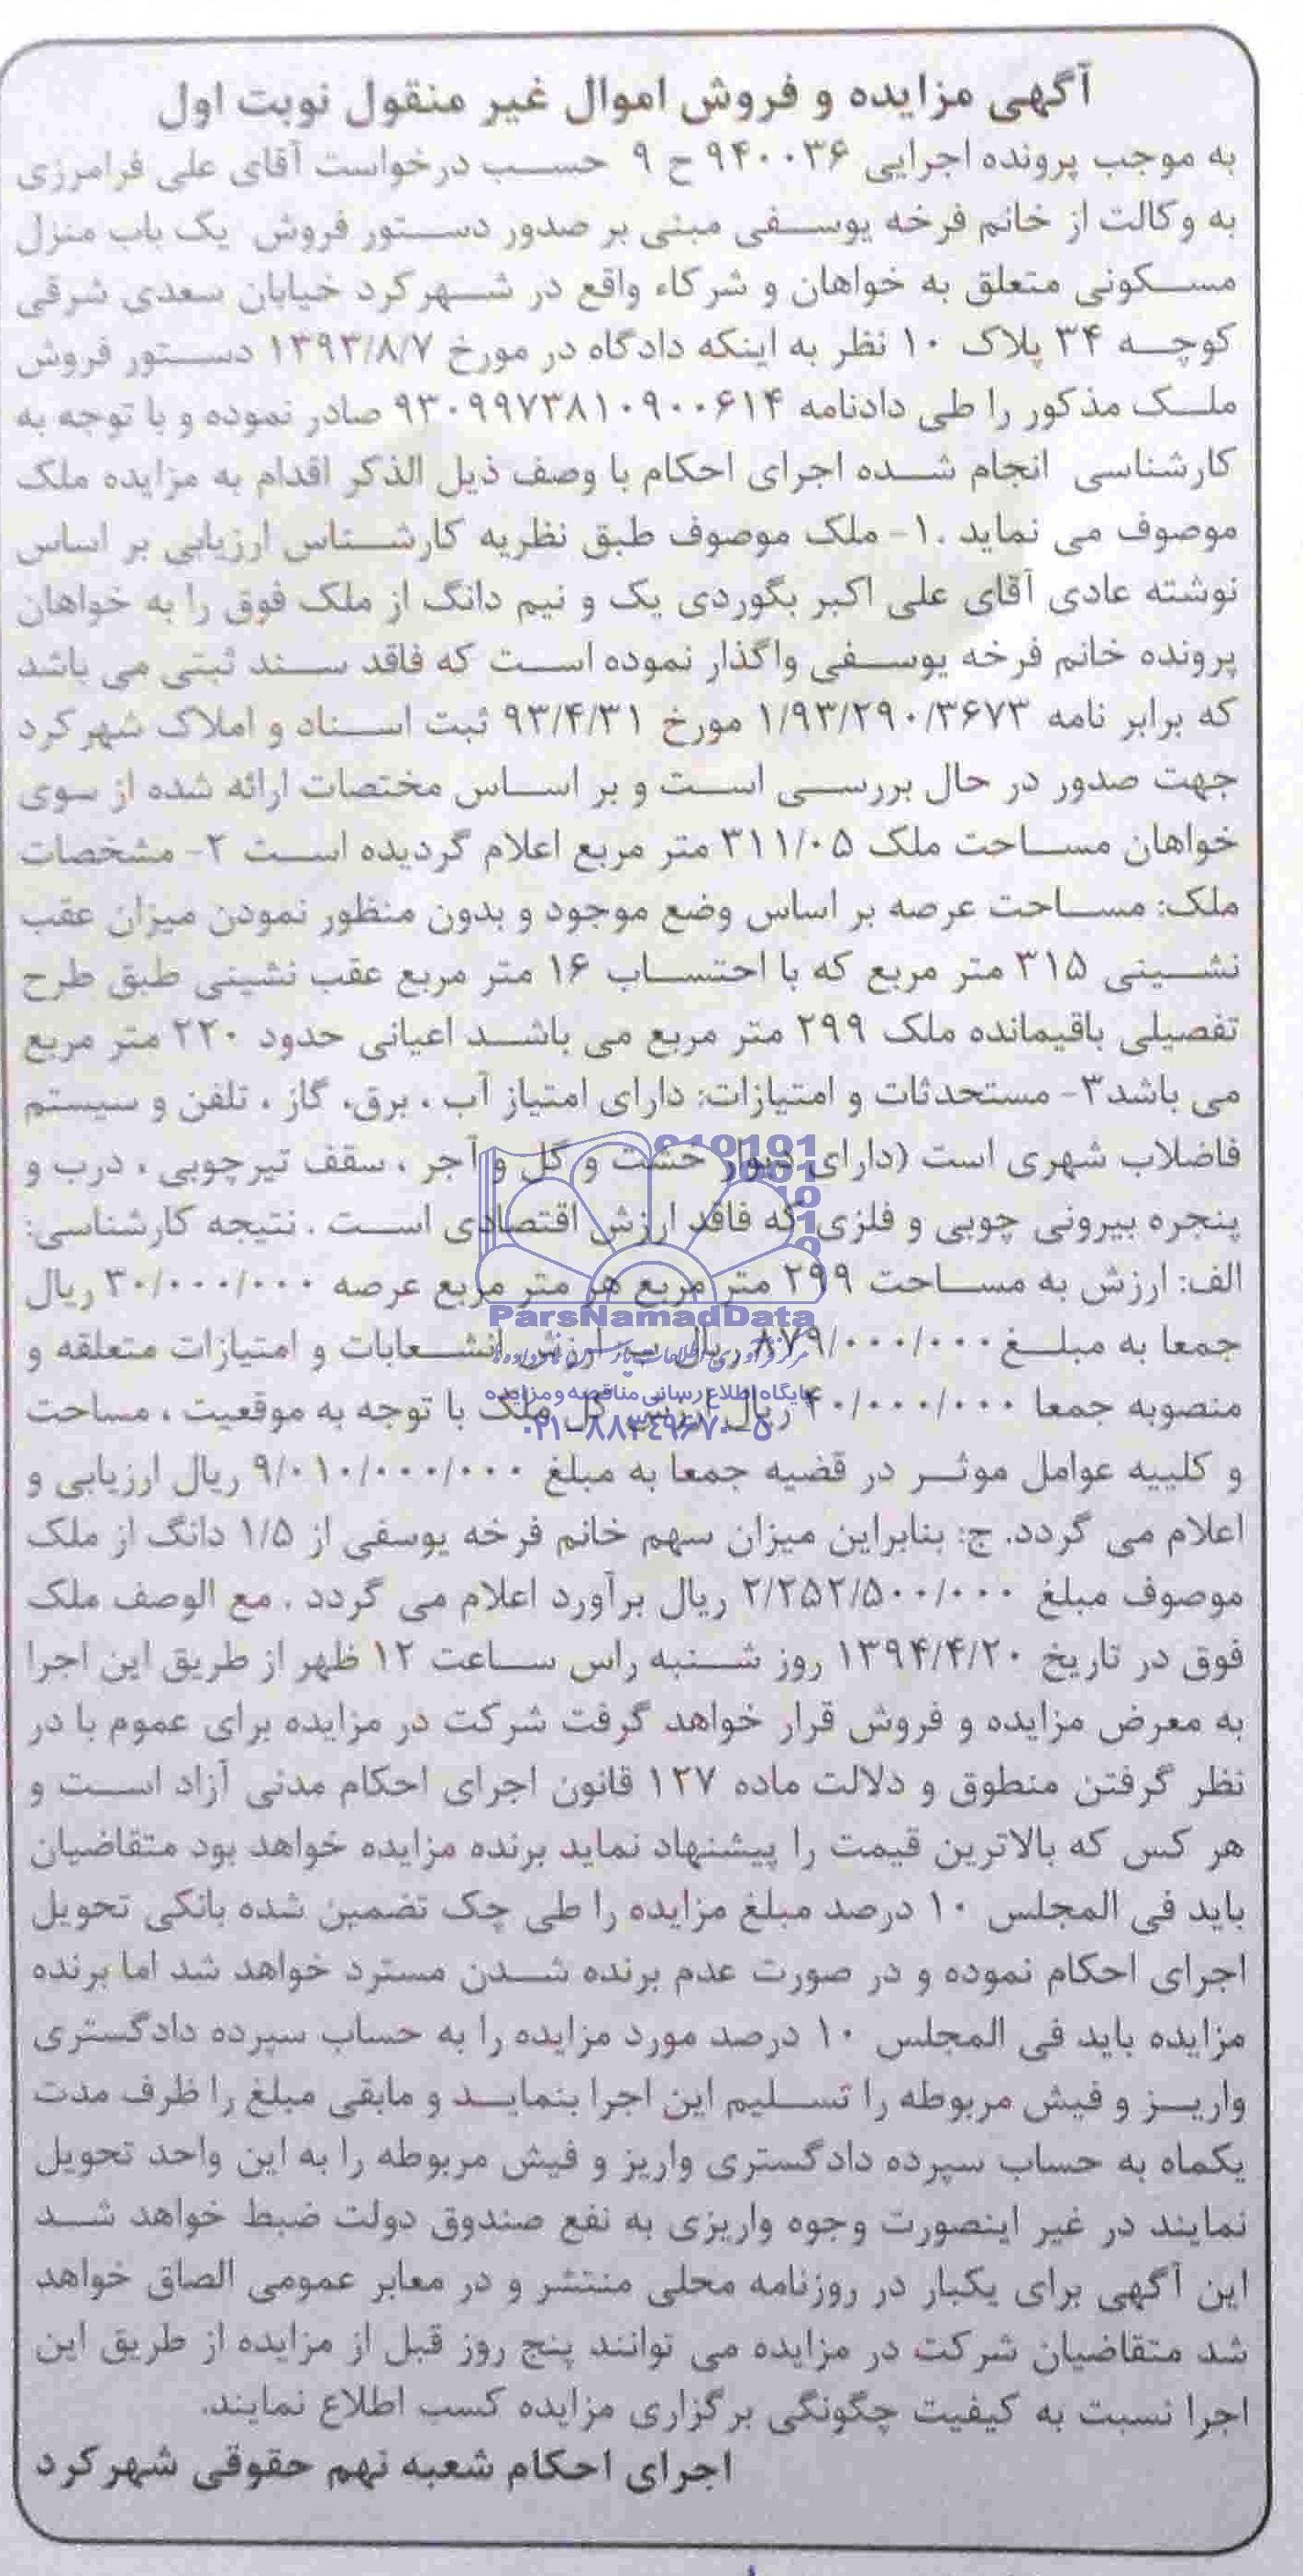 آگهی مزایده و فروش اموال غیر منقول نوبت اول
به موجب پرونده اجرایی ۹۴۰۰۳۶ ح ۹ حسب درخواست آقای علی فرامرزی
به وکالت از خانم فرخه یوسفی مبنی بر صدور دستور فروش یک باب منزل
مسکونی متعلق به خواهان و شرکاء واقع در شهرکرد خیابان سعدی شرقی
کوچه ۳۴ پلاک ۱۰ نظر به اینکه دادگاه در مورخ ۱۳۹۳/۸/۷ دستور فروش
ملک مذکور را طی دادنامه ۹۳۰۹۹۷۳۸۱۰۹۰۰۶۱۴ صادر نموده و با توجه به
کارشناسی انجام شده اجرای احکام با وصف ذیل الذکر اقدام به مزایده ملک
موصوف می نماید .۱- ملک موصوف طبق نظریه کارشناس ارزیابی بر اساس
نوشته عادی آقای علی اکبر بگوردی یک و نیم دانگ از ملک فوق را به خواهان
پرونده خانم فرخه یوسفی واگذار نموده است که فاقد سند ثبتی می باشد
که برابر نامه ۱/۹۳/۲۹۰/۳۶۷۳ مورخ ۹۳/۴/۳۱ ثبت اسناد و املاک شهرکرد
جهت صدور در حال بررسی است و بر اساس مختصات ارائه شده از سوی
خواهان مساحت ملک ۳۱۱/۰۵ متر مربع اعلام گردیده است ۲- مشخصات
ملک: مساحت عرصه بر اساس وضع موجود و بدون منظور نمودن میزان عقب
نشینی ۳۱۵ متر مربع که با احتساب ۱۶ متر مربع عقب نشینی طبق طرح
تفصیلی باقیمانده ملک ۲۹۹ متر مربع می باشد اعیانی حدود ۲۲۰ متر مربع
می باشد۳- مستحدثات و امتیازات: دارای امتیاز آب ، برق، گاز ، تلفن و سیستم
فاضلاب شهری است (دارای دیوار خشت و گل و آجر ، سقف تیرچوبی ، درب و
پنجره بیرونی چوبی و فلزی که فاقد ارزش اقتصادی است . نتیجه کارشناسی:
الف: ارزش به مساحت ۲۹۹ متر مربع هر متر مربع عرصه ۳۰/۰۰۰/۰۰۰ ریال
ParsNamadData
جمعا به مبلغ ۸۷۹/۰۰۰/۰۰۰ ریال ب: ارزش انشعابات و امتیازات متعلقه و
پایگاه اطلاع رسانی مناقصه و مزایده
منصوبه جمعا ۴۰/۰۰۰/۰۰۰ ریال ارزش کل ملک با توجه به موقعیت ، مساحت
۰۲۱-۸۸۳۴۹۶۷۰-۵
و کلییه عوامل موثر در قضیه جمعا به مبلغ ۹/۰۱۰/۰۰۰/۰۰۰ ریال ارزیابی و
اعلام می گردد. ج: بنابراین میزان سهم خانم فرخه یوسفی از ۱/۵ دانگ از ملک
موصوف مبلغ ۲/۲۵۲/۵۰۰/۰۰۰ ریال برآورد اعلام می گردد . مع الوصف ملک
فوق در تاریخ ۱۳۹۴/۴/۲۰ روز شنبه راس ساعت ۱۲ ظهر از طریق این اجرا
به معرض مزایده و فروش قرار خواهد گرفت شرکت در مزایده برای عموم با در
نظر گرفتن منطوق و دلالت ماده ۱۲۷ قانون اجرای احکام مدنی آزاد است و
هر کس که بالاترین قیمت را پیشنهاد نماید برنده مزایده خواهد بود متقاضیان
باید فی المجلس ۱۰ درصد مبلغ مزایده را طی چک تضمین شده بانکی تحویل
اجرای احکام نموده و در صورت عدم برنده شدن مسترد خواهد شد اما برنده
مزایده باید فی المجلس ۱۰ درصد مورد مزایده را به حساب سپرده دادگستری
واریز و فیش مربوطه را تسلیم این اجرا بنماید و مابقی مبلغ را ظرف مدت
یکماه به حساب سپرده دادگستری واریز و فیش مربوطه را به این واحد تحویل
نمایند در غیر اینصورت وجوه واریزی به نفع صندوق دولت ضبط خواهد شد
این آگهی برای یکبار در روزنامه محلی منتشر و در معابر عمومی الصاق خواهد
شد متقاضیان شرکت در مزایده می توانند پنج روز قبل از مزایده از طریق این
اجرا نسبت به کیفیت چگونگی برگزاری مزایده کسب اطلاع نمایند.
اجرای احکام شعبه نهم حقوقی شهرکرد